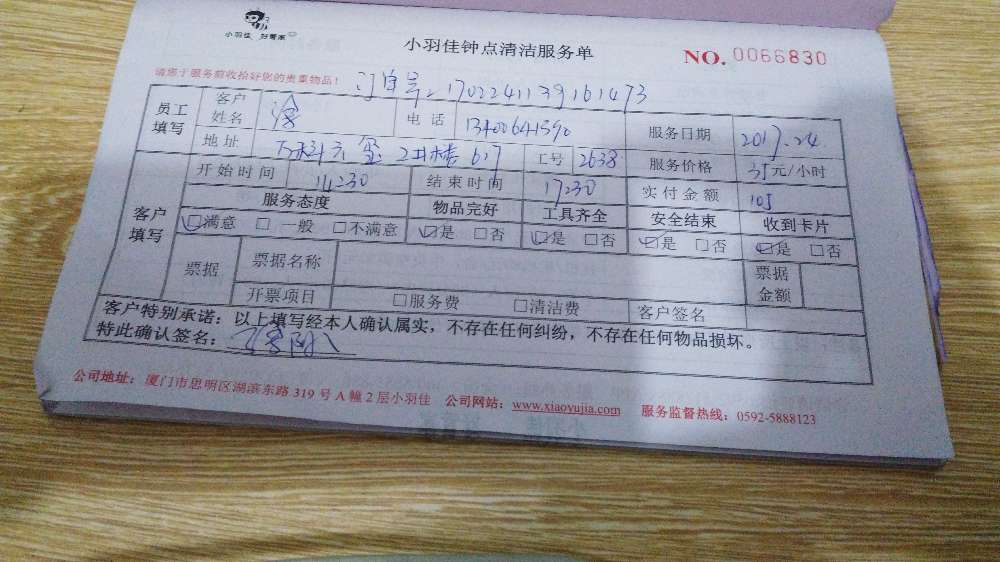 小羽佳 好管家
小羽佳钟点清洁服务单
NO. 0066830
请您于服务前收拾好您的贵重物品!
订单号: 1702241139161473
员工填写 客户姓名 电话 13400641590 服务日期 2017.24
地址 万科云玺 2#楼 617 工号 2638 服务价格 35元/小时
客户填写 开始时间 14:30 结束时间 17:30 实付金额 105
服务态度 物品完好 工具齐全 安全结束 收到卡片
☑满意 □一般 □不满意 ☑是 □否 ☑是 □否 ☑是 □否 ☑是 □否
票据 票据名称 票据金额
开票项目 □服务费 □清洁费 客户签名
客户特别承诺:以上填写经本人确认属实,不存在任何纠纷,不存在任何物品损坏。
特此确认签名:
公司地址:厦门市思明区湖滨东路 319 号 A 幢 2 层小羽佳 公司网站:www.xiaoyujia.com 服务监督热线:0592-5888123